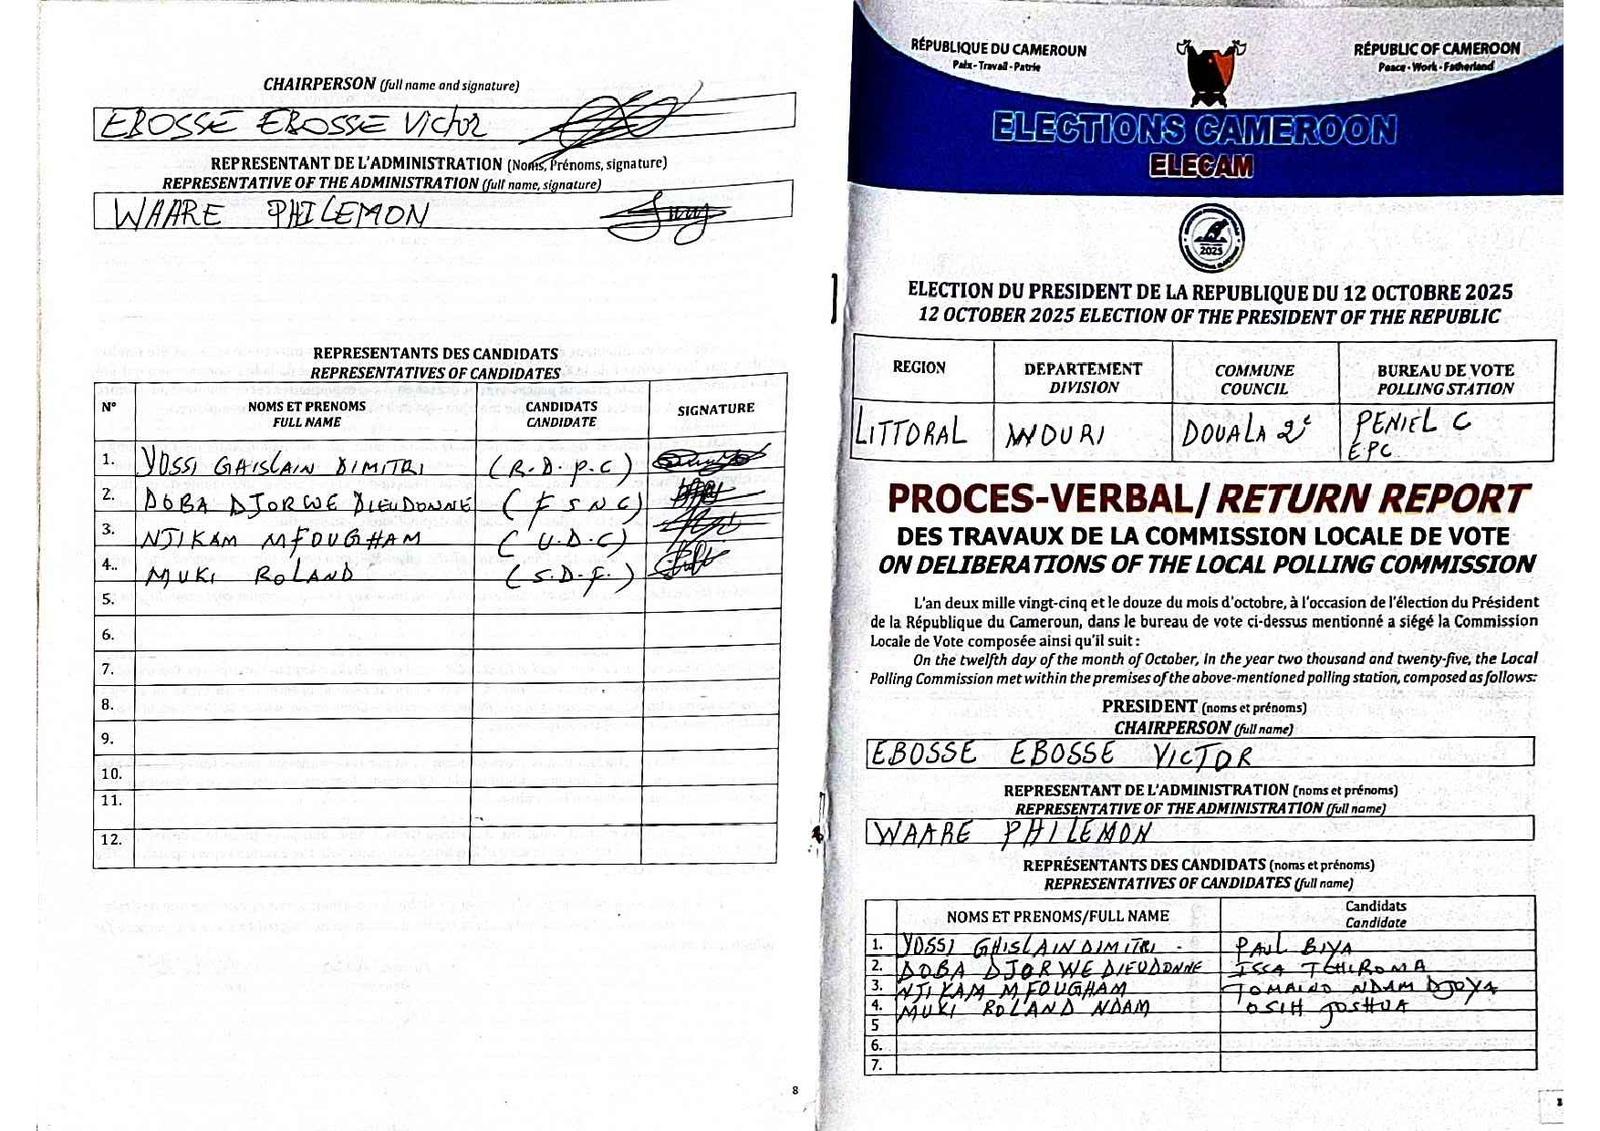 CHAIRPERSON (full name and signature)
EBOSSE EBOSSE Victor
REPRESENTANT DE L'ADMINISTRATION (Noms, Prénoms, signature)
REPRESENTATIVE OF THE ADMINISTRATION (full name, signature)
WAARE PHILEMON
REPRESENTANTS DES CANDIDATS
REPRESENTATIVES OF CANDIDATES
N° NOMS ET PRENOMS CANDIDATS SIGNATURE
FULL NAME CANDIDATE
1. YOSSI GHISLAIN DIMITRI (R.D.P.C)
2. DOBA DJORWE DIEUDONNE (FSNC)
3. NJIKAM MFOUGHAM (U.D.C)
4.. MUKI ROLAND (S.D.F.)
5.
6.
7.
8.
9.
10.
11.
12.
8
RÉPUBLIQUE DU CAMEROUN
Paix - Travail - Patrie
RÉPUBLIC OF CAMEROON
Peace - Work - Fatherland
ELECTIONS CAMEROON
ELECAM
2025
ELECTION DU PRESIDENT DE LA REPUBLIQUE DU 12 OCTOBRE 2025
12 OCTOBER 2025 ELECTION OF THE PRESIDENT OF THE REPUBLIC
REGION DEPARTEMENT COMMUNE BUREAU DE VOTE
DIVISION COUNCIL POLLING STATION
LITTORAL WOURI DOUALA 2e PENIEL C
EPC
PROCES-VERBAL/ RETURN REPORT
DES TRAVAUX DE LA COMMISSION LOCALE DE VOTE
ON DELIBERATIONS OF THE LOCAL POLLING COMMISSION
L'an deux mille vingt-cinq et le douze du mois d'octobre, à l'occasion de l'élection du Président
de la République du Cameroun, dans le bureau de vote ci-dessus mentionné a siégé la Commission
Locale de Vote composée ainsi qu'il suit :
On the twelfth day of the month of October, in the year two thousand and twenty-five, the Local
Polling Commission met within the premises of the above-mentioned polling station, composed as follows:
PRESIDENT (noms et prénoms)
CHAIRPERSON (full name)
EBOSSE EBOSSE VICTOR
REPRESENTANT DE L'ADMINISTRATION (noms et prénoms)
REPRESENTATIVE OF THE ADMINISTRATION (full name)
WAARE PHILEMON
REPRÉSENTANTS DES CANDIDATS (noms et prénoms)
REPRESENTATIVES OF CANDIDATES (full name)
NOMS ET PRENOMS/FULL NAME Candidats
Candidate
1. YOSSI GHISLAIN DIMITRI PAUL BIYA
2. DOBA DJORWE DIEUDONNE ISSA TCHIROMA
3. NJIKAM MFOUGHAM TOMAINO NDAM DJOYA
4. MUKI ROLAND NDAM OSIH JOSHUA
5
6.
7.
1